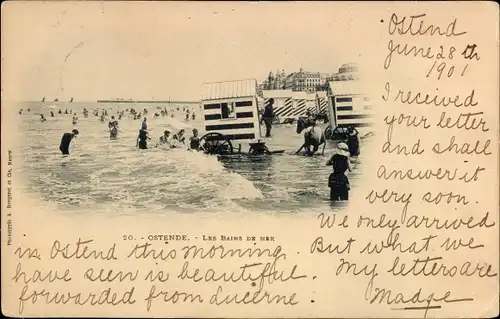 Ostend
June 28th
1901
I received
your letter
and shall
answer it
very soon.
We only arrived
in Ostend this morning. But what we
have seen is beautiful. My letters are
forwarded from Lucerne
Madge
20. - OSTENDE. - LES BAINS DE MER